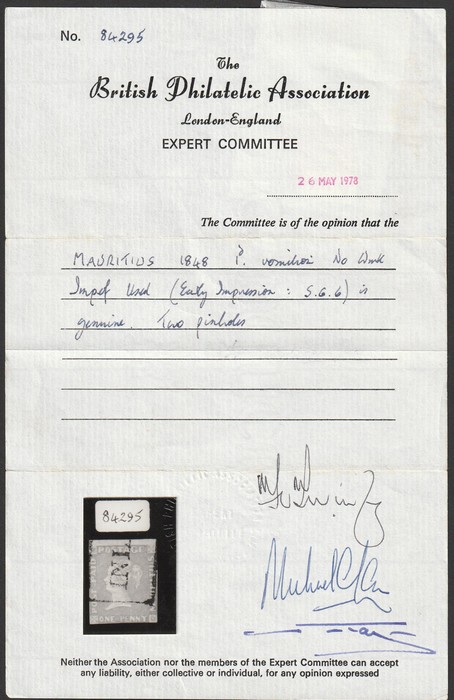 No. 84295
The
British Philatelic Association
London-England
EXPERT COMMITTEE
26 MAY 1978
The Committee is of the opinion that the
MAURITIUS 1848 1d. vermilion No Wmk
Imperf Used (Early Impression: S.G.6) is
genuine. Two pinholes
84295
POSTAGE
ONE PENNY
Neither the Association nor the members of the Expert Committee can accept
any liability, either collective or individual, for any opinion expressed